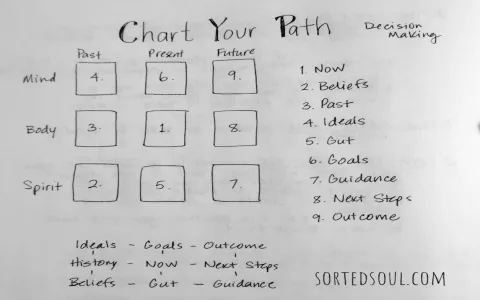 Chart Your Path
Decision
Making
Past Present Future
Mind 4. 6. 9.
Body 3. 1. 8.
Spirit 2. 5. 7.
1. Now
2. Beliefs
3. Past
4. Ideals
5. Gut
6. Goals
7. Guidance
8. Next Steps
9. Outcome
Ideals - Goals - Outcome
History - Now - Next Steps
Beliefs - Gut - Guidance
SORTEDSOUL.COM